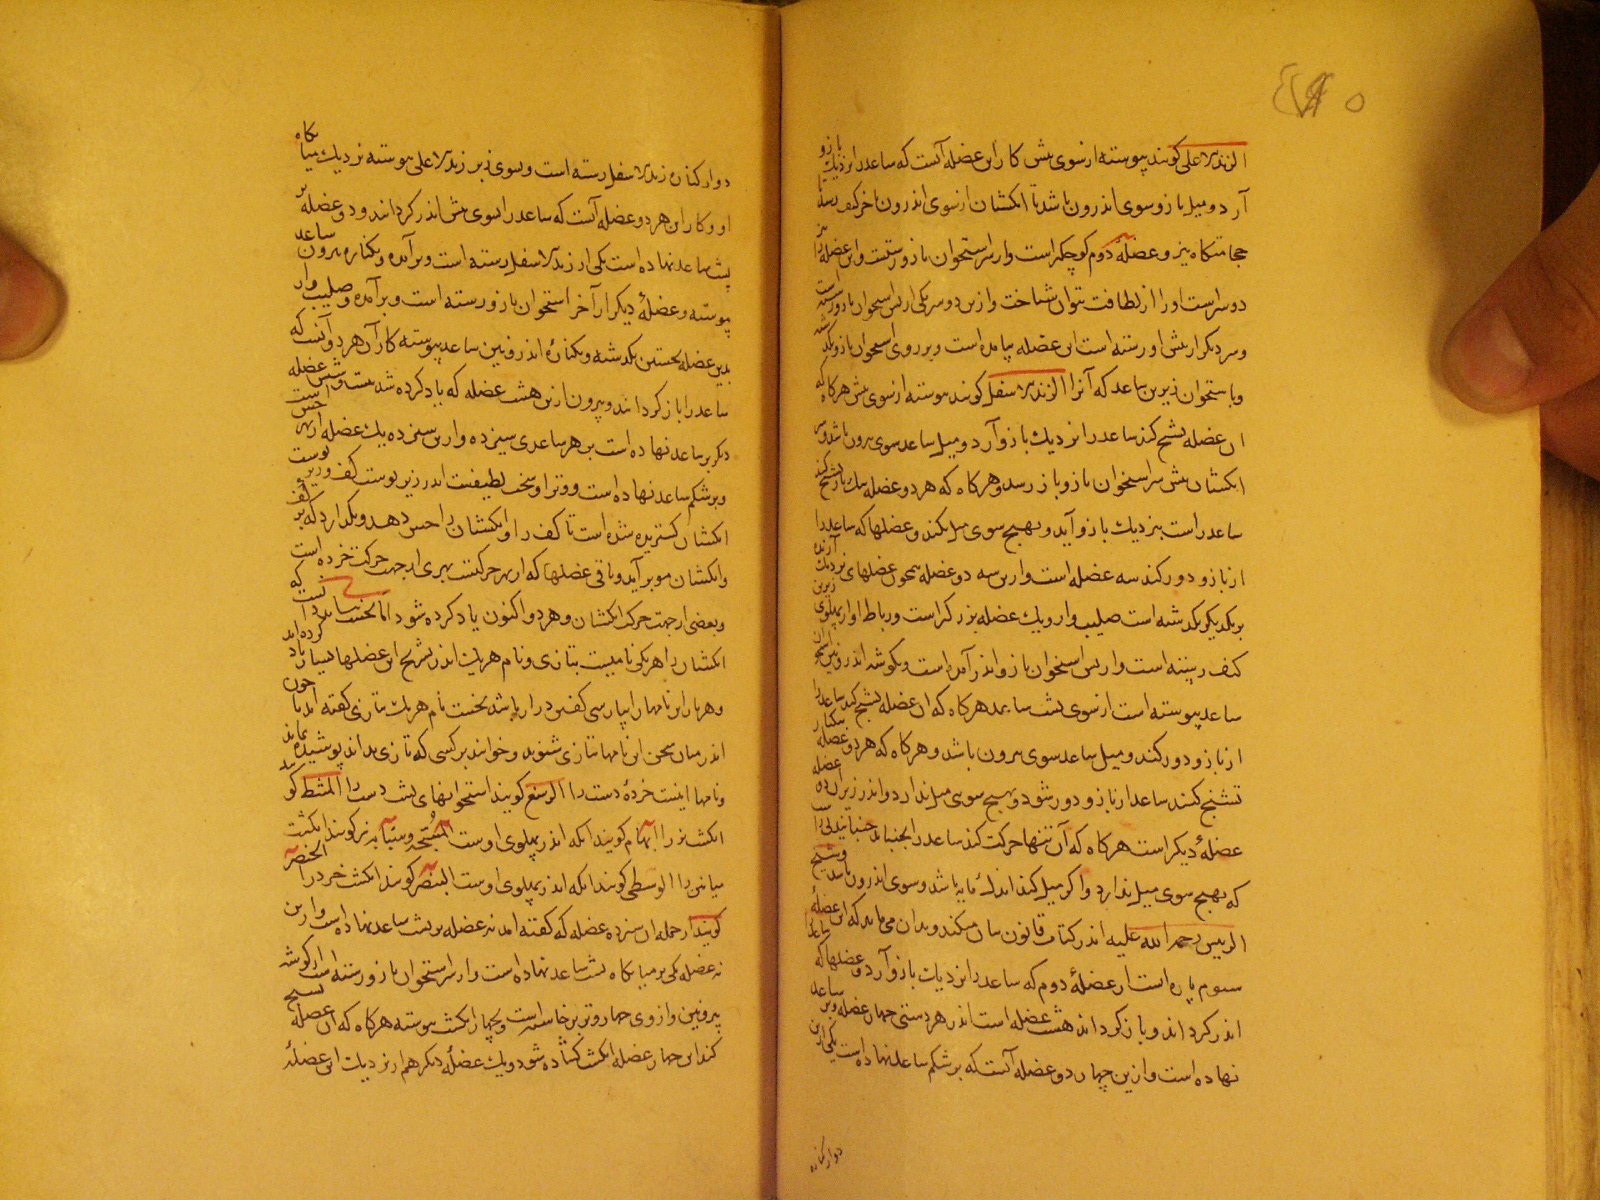 الزند الاعلی کویند پیوسته از سوی پیش کار این عضله آنست که ساعد را نزدیك بازو
آرد و میل بازو سوی اندرون باشد تا انکشتان از سوی اندرون باخر کتف رسد تا
حجامتکاه نیز و عضلهٔ دوم کوچکتر است و از سر استخوان بازو رستست و این عضله را
دو سر است او را از لطافت نتوان شناخت و ازین دو سر یکی از پس استخوان بازو رسته است
و سر دیکر از پیش او رسته است این عضله بیامده است و بر روی استخوان بازو بکذشته
و باستخوان زیرین ساعد که آنرا الزند الاسفل کویند پیوسته از سوی پیش هرکاه که
این عضله تشنج کند ساعد را نزدیك بازو آرد و میل ساعد سوی بیرون باشد و سر
انکشتان پیش سر استخوان بازو باز رسد و هرکاه که هر دو عضله بیك بار تشنج کند
ساعد راست بنزدیك بازو آید و بهیچ سوی میل نکند و عضلها که ساعد را
از بازو دور کند سه عضله است و ازین سه دو عضله همچون عضلهای نزدیك آرنده
بر یکدیکر بکذشته است صلیب وار و یك عضله بزرکتر است و رباط او از پهلوی زیرین
کتف رسته است و از پس استخوان بازو اندر آمده است و بکوشه اندرونین استخوان
ساعد پیوسته است از سوی پشت ساعد هرکاه که این عضله تشنج کند ساعد را
از بازو دور کند و میل ساعد سوی بیرون باشد و هرکاه که هر دو عضله بیکبار
تشنج کنند ساعد از بازو دور شود و بهیچ سوی میل ندارد و اندر زیر این دو عضله
عضلهٔ دیکر است هرکاه که آن تنها حرکت کند ساعد را بجنباند جنبانیدنی راست
که بهیچ سوی میل ندارد و اکر میل کند اندك مایه باشد و سوی اندرون باشد و شیخ
الرییس رحمه الله علیه اندر کتاب قانون بیان میکند و بدان می ماند که این عضلهٔ
سوم پاره است از عضلهٔ دوم که ساعد را نزدیك بازو آرد و عضلها که ساعد را
اندر کرداند و باز کرداند هشت عضله است اندر هر دستی چهار عضله و بر ساعد
نهاده است و ازین چهار دو عضله آنست که بر شکم ساعد نهاده است یکی ازین
دو از کناره
دو از کناره زند الاسفل رسته است و سوی زبر زند الاعلی پیوسته نزدیك میانکاه
او و کار این هر دو عضله آنست که ساعد را سوی پیش اندر کردانند و دو عضله بر
پشت ساعد نهاده است یکی از زند الاسفل رسته است و برآمده و بکناره بیرون ساعد
پیوسته و عضلهٔ دیکر از آخر استخوان بازو رسته است و برآمده و صلیب وار
بدین عضله نخستین بکذشته و بکنارهٔ اندرونین ساعد پیوسته کار آن هر دو آنست که
ساعد را باز کردانند و بیرون ازین هشت عضله که یاد کرده شد بیست و شش عضله
دیکر بر ساعد نهاده است بر هر ساعدی سیزده و ازین سیزده یك عضله از بهر حس است
و بر شکم ساعد نهاده است و وتر او سخت لطیفست اندر زیر پوست کف و زیر پوست
انکشتان کسترده شده است تا کف را و انکشتان را حس دهد و نکذارد که بر کف
و انکشتان موی برآید و باقی عضلها که از بهر حرکتست بهری از جهت حرکت خرده است
و بعضی از جهت حرکت انکشتان و هر دو اکنون یاد کرده شود اما نخست بباید دانست که
انکشتان را هر یکی نامیست بتازی و نام هر یك اندر تشریح این عضلها بسیار یاد کرده اند
و هر بار این نامها را بپارسی کفتن دراز باشد نخست نام هر یك بتازی کفته آمد تا چون
اندر میان سخن این نامها بتازی شنود و خواند بر کسی که تازی نداند پوشیده نماند
و نامها اینست خردهٔ دست را الرسغ کویند استخوانهای پشت دست را المشط کویند
انکشت نر را ابهام کویند انکه اندر پهلوی اوست المسبحه و سبابه نیز کویند انکشت
میانی را الوسطی کویند انکه اندر پهلوی اوست البنصر کویند انکشت خرد را الخنصر
کویند از جمله این سیزده عضله که کفته آمد نه عضله بر پشت ساعد نهاده است و ازین
نه عضله یکی بر میانکاه پشت ساعد نهاده است و از سر استخوان بازو رسته است از کوشه
بیرونین و از وی چهار وتر برخاسته است و بچهار انکشت پیوسته هرکاه که این عضله تشنج
کند این چهار عضله انکشت کشاده شود و یك عضلهٔ دیکر هم از نزدیك این عضلهٔ